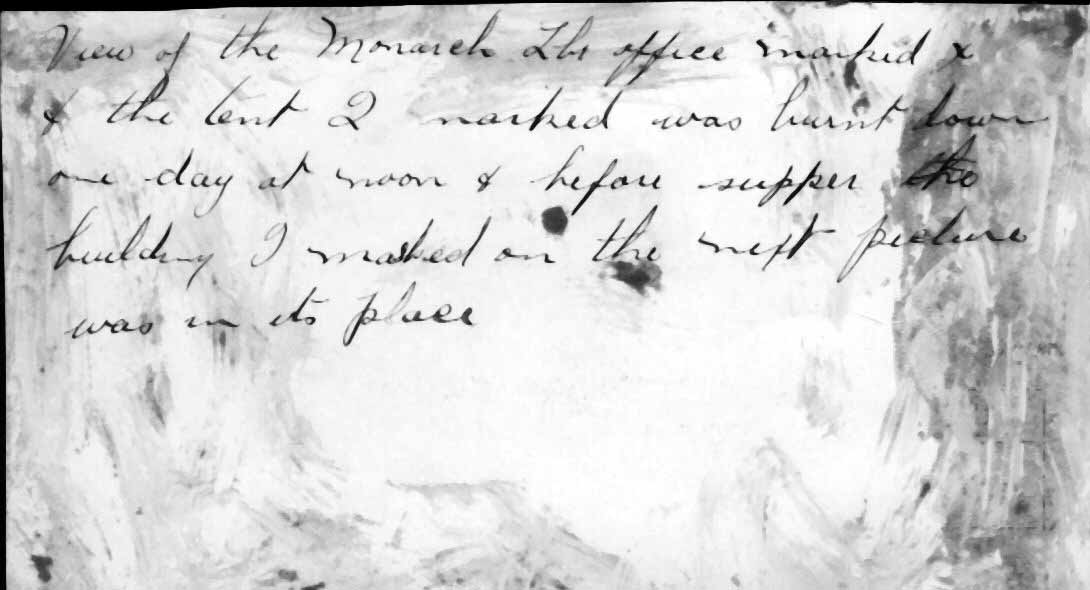 View of the Monarch Lbr office marked x
& the tent 2 marked was burnt down
one day at noon & before supper the
building I marked on the next picture
was in its place